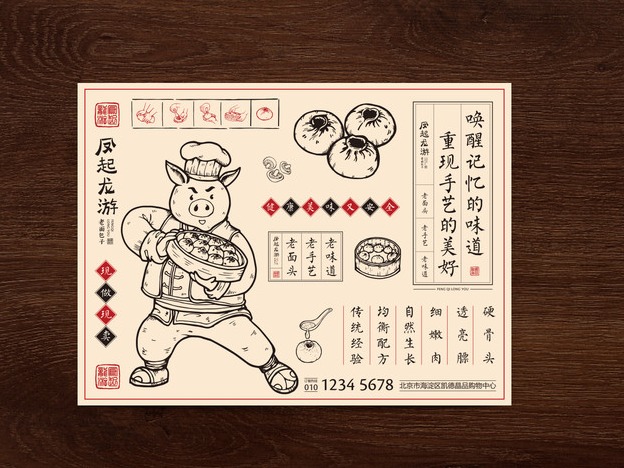 凤起龙游
老面包子
现做现卖
健康美味又安全
老面头
老手艺
老味道
唤醒记忆的味道
重现手艺的美好
凤起龙游
老面头
老手艺
老味道
FENG QI LONG YOU
硬骨头
透亮膘
细嫩肉
自然生长
均衡配方
传统经验
010
1234 5678
北京市海淀区凯德晶品购物中心